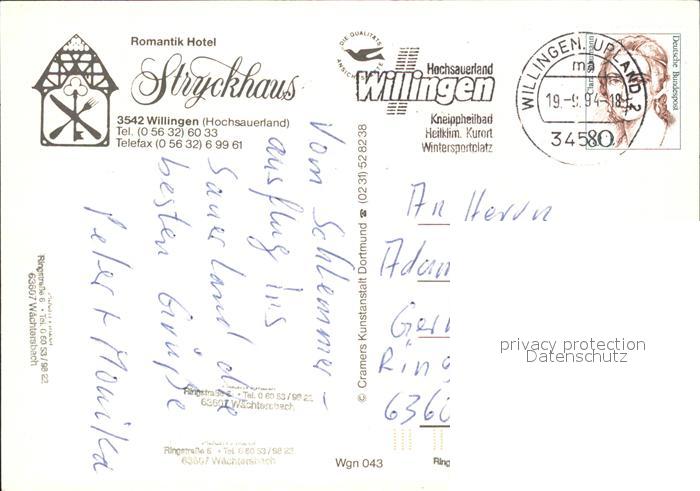 Romantik Hotel
Stryckhaus
3542 Willingen (Hochsauerland)
Tel. (0 56 32) 60 33
Telefax (0 56 32) 6 99 61
Vom Schlemmer-
ausflug ins
Sauerland die
besten Grüße
Peter + Monika
Ringstraße 6 • Tel. 0 60 53 / 98 22
63607 Wächtersbach
Ringstraße 6 • Tel. 0 60 53 / 98 22
63607 Wächtersbach
Ringstraße 6 • Tel. 0 60 53 / 98 22
63607 Wächtersbach
© Cramers Kunstanstalt Dortmund (02 31) 52 82 38
Wgn 043
DIE QUALITÄTS
ANSICHTSKARTE
Hochsauerland
Willingen
Kneippheilbad
Heilklim. Kurort
Wintersportplatz
WILLINGEN, UPLAND
19.-9.94-18
34508
80
Deutsche Bundespost
An Herrn
Adam
Ger
Ring
6360
Ring
privacy protection
Datenschutz